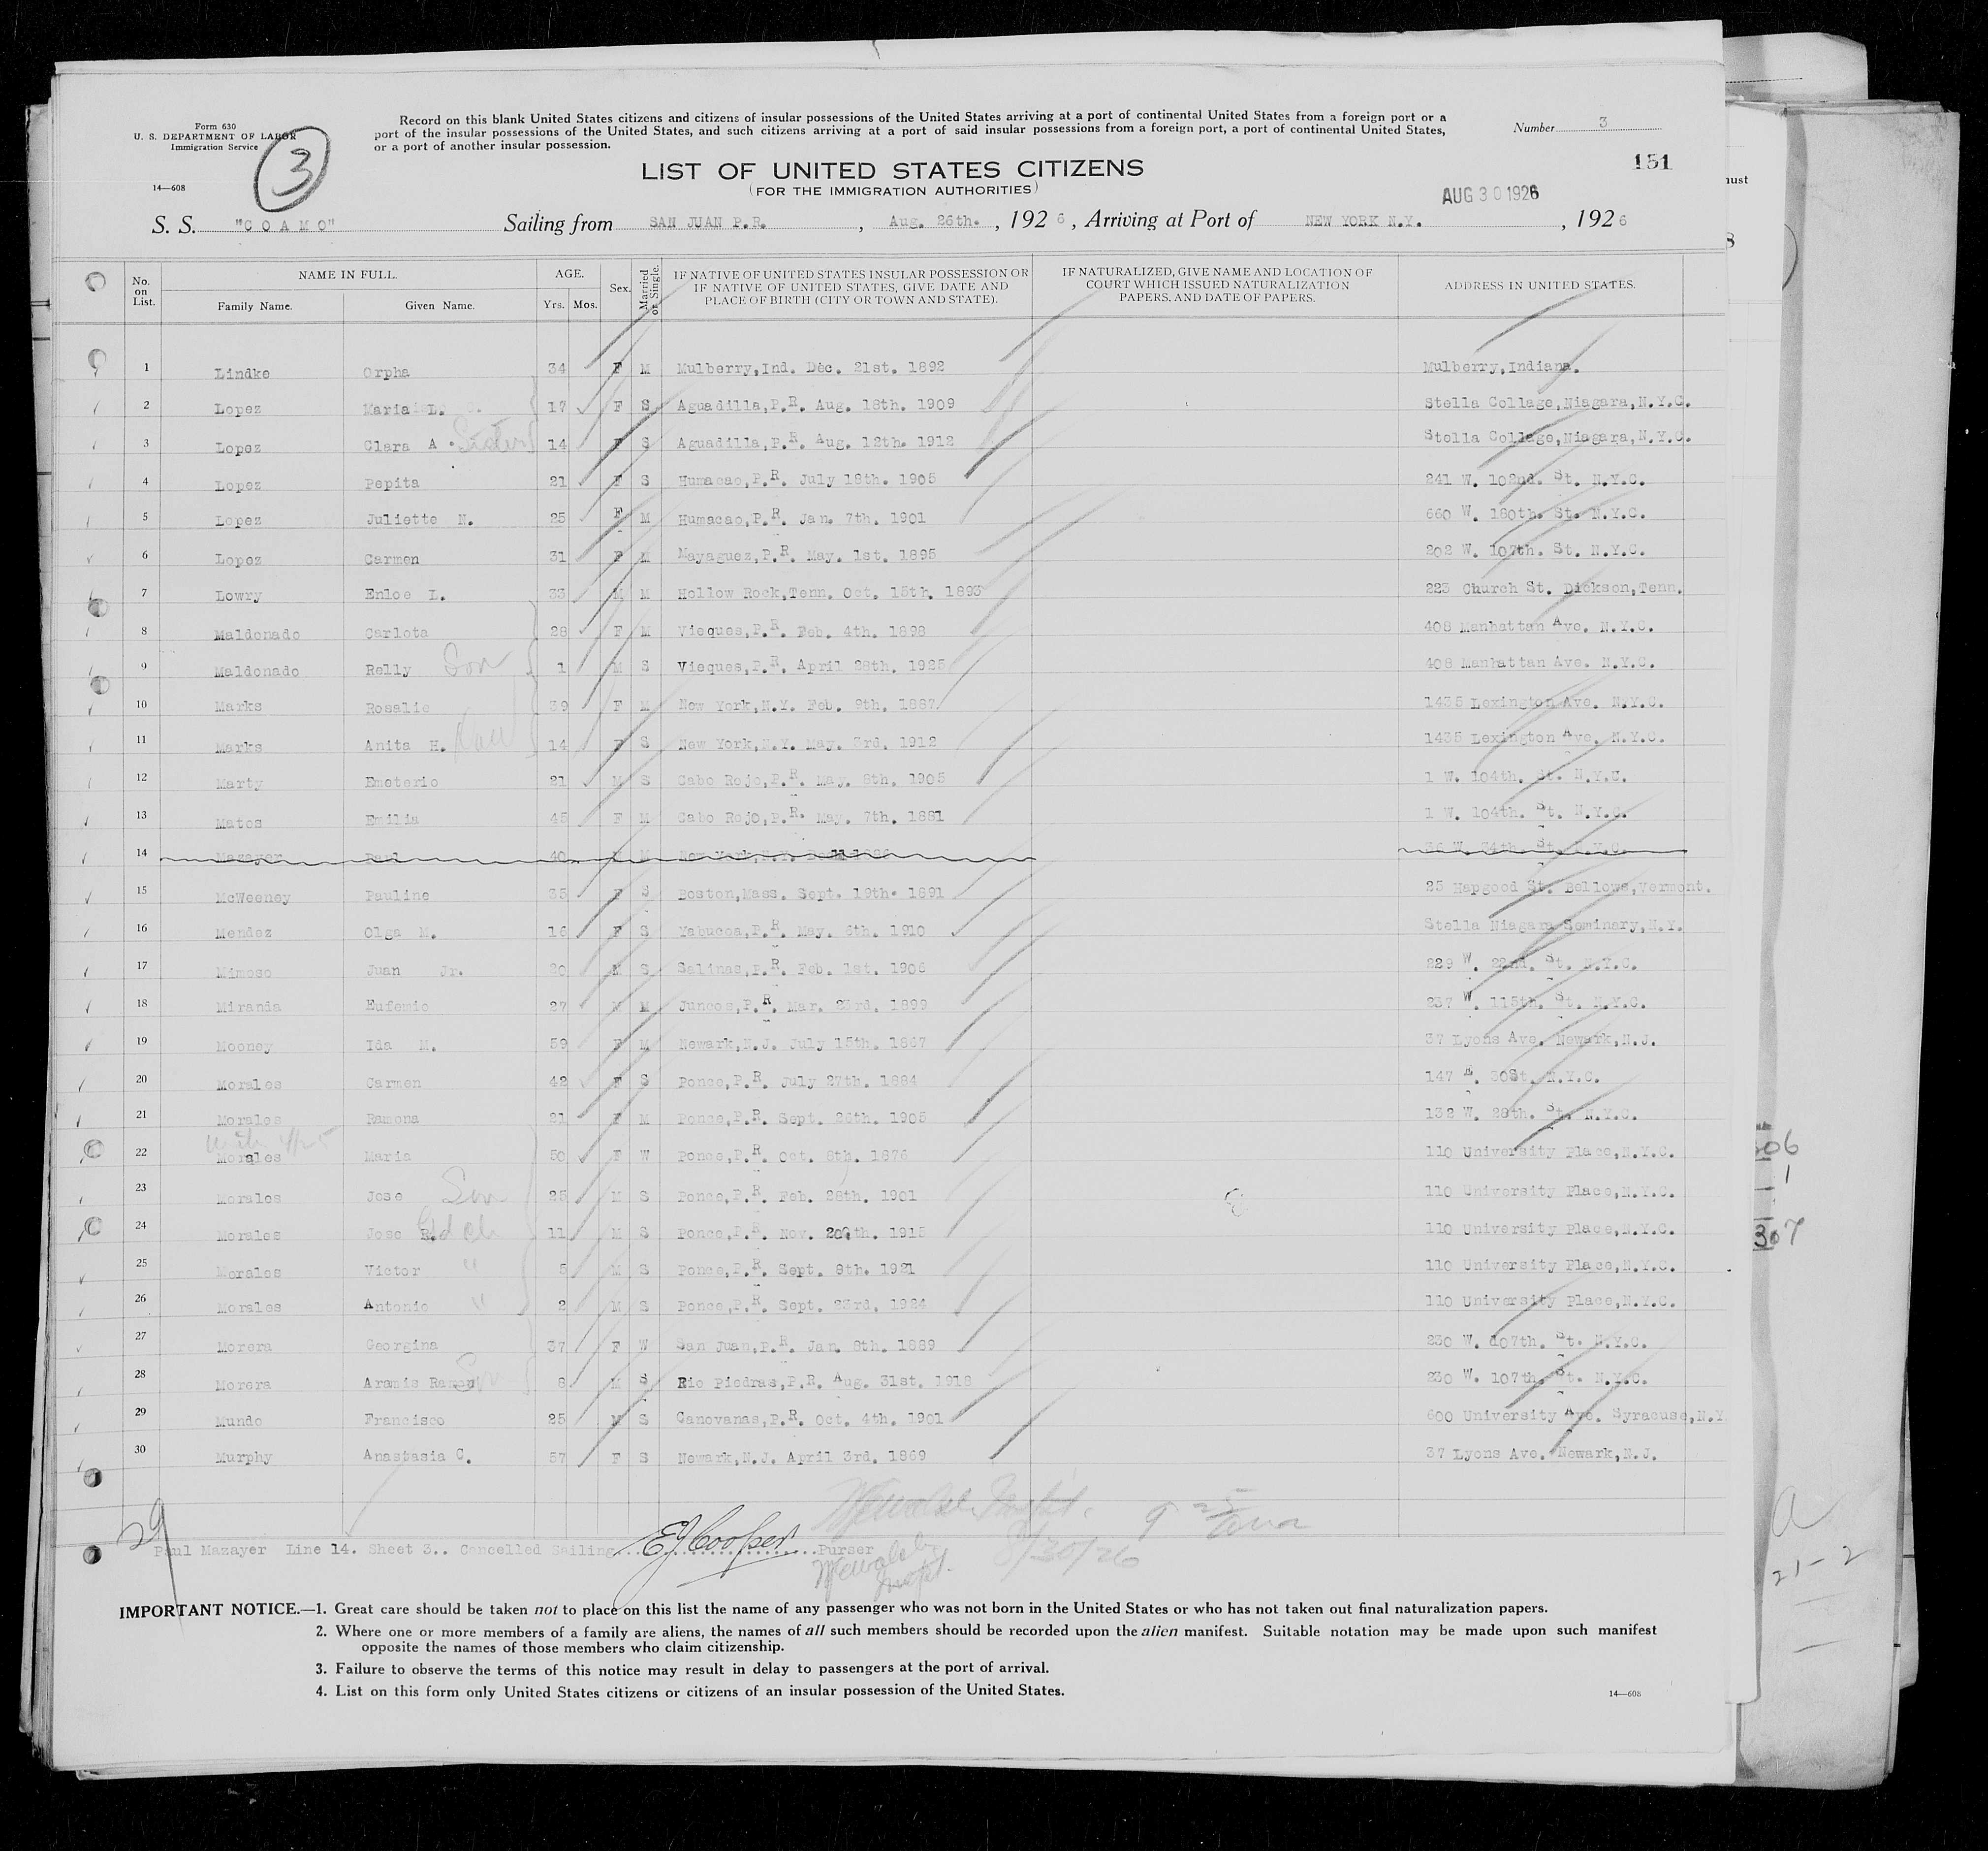 Form 630
U. S. DEPARTMENT OF LABOR
Immigration Service
3
14—608
Record on this blank United States citizens and citizens of insular possessions of the United States arriving at a port of continental United States from a foreign port or a
port of the insular possessions of the United States, and such citizens arriving at a port of said insular possessions from a foreign port, a port of continental United States,
or a port of another insular possession.
Number 3
151
LIST OF UNITED STATES CITIZENS
(FOR THE IMMIGRATION AUTHORITIES)
AUG 30 1926
S. S. "C O A M O" Sailing from SAN JUAN P.R. , Aug. 26th. , 1926 , Arriving at Port of NEW YORK N.Y. , 1926
No. on List. NAME IN FULL. AGE. Sex. Married or Single. IF NATIVE OF UNITED STATES INSULAR POSSESSION OR IF NATIVE OF UNITED STATES, GIVE DATE AND PLACE OF BIRTH (CITY OR TOWN AND STATE). IF NATURALIZED, GIVE NAME AND LOCATION OF COURT WHICH ISSUED NATURALIZATION PAPERS, AND DATE OF PAPERS. ADDRESS IN UNITED STATES.
Family Name. Given Name. Yrs. Mos.
1 Lindke Orpha 34 F M Mulberry,Ind. Dec. 21st. 1892 Mulberry,Indiana.
2 Lopez Maria L. 17 F S Aguadilla,P.R. Aug. 18th. 1909 Stella Collage,Niagara,N.Y.C.
3 Lopez Clara A. Sister 14 F S Aguadilla,P.R. Aug. 12th. 1912 Stella Collage,Niagara,N.Y.C.
4 Lopez Pepita 21 F S Humacao,P.R. July 18th. 1905 241 W. 102nd. St. N.Y.C.
5 Lopez Juliette N. 25 F M Humacao,P.R. Jan. 7th. 1901 660 W. 180th. St. N.Y.C.
6 Lopez Carmen 31 F M Mayaguez,P.R. May. 1st. 1895 202 W. 107th. St. N.Y.C.
7 Lowry Enloe L. 33 M M Hollow Rock,Tenn. Oct. 15th. 1893 223 Church St. Dickson,Tenn.
8 Maldonado Carlota 28 F M Vieques,P.R. Feb. 4th. 1898 408 Manhattan Ave. N.Y.C.
9 Maldonado Relly Son 1 M S Vieques,P.R. April 28th. 1925 408 Manhattan Ave. N.Y.C.
10 Marks Rosalie 39 F M New York,N.Y. Feb. 9th. 1887 1435 Lexington Ave. N.Y.C.
11 Marks Anita H. Dau 14 F S New York,N.Y. May. 3rd. 1912 1435 Lexington Ave. N.Y.C.
12 Marty Emeterio 21 M S Cabo Rojo,P.R. May. 8th. 1905 1 W. 104th. St. N.Y.C.
13 Matos Emilia 45 F M Cabo Rojo,P.R. May. 7th. 1881 1 W. 104th. St. N.Y.C.
14 Mazayer Paul 40 M New York,N.Y. 1886 W. 34th. St. N.Y.C.
15 McWeeney Pauline 35 F S Boston,Mass. Sept. 19th. 1891 25 Hapgood St. Bellows,Vermont.
16 Mendez Olga M. 16 F S Yabucoa,P.R. May. 6th. 1910 Stella Niagara Seminary,N.Y.
17 Mimoso Juan Jr. 20 M S Salinas,P.R. Feb. 1st. 1906 229 W. 22nd. St. N.Y.C.
18 Mirania Eufemio 27 M M Juncos,P.R. Mar. 23rd. 1899 237 W. 115th. St. N.Y.C.
19 Mooney Ida M. 59 F M Newark,N.J. July 15th. 1867 37 Lyons Ave. Newark,N.J.
20 Morales Carmen 42 F S Ponce,P.R. July 27th. 1884 147 E. 30St. N.Y.C.
21 Morales Ramona 21 F M Ponce,P.R. Sept. 26th. 1905 132 W. 28th. St. N.Y.C.
22 Morales Maria 50 F W Ponce,P.R. Oct. 8th. 1876 110 University Place,N.Y.C.
23 Morales Jose Son 25 M S Ponce,P.R. Feb. 28th. 1901 110 University Place,N.Y.C.
24 Morales Jose R. Gd ch 11 M S Ponce,P.R. Nov. 20th. 1915 110 University Place,N.Y.C.
25 Morales Victor " 5 M S Ponce,P.R. Sept. 8th. 1921 110 University Place,N.Y.C.
26 Morales Antonio " 2 M S Ponce,P.R. Sept. 23rd. 1924 110 University Place,N.Y.C.
27 Morera Georgina 37 F W San Juan,P.R. Jan. 8th. 1889 230 W. 107th. St. N.Y.C.
28 Morera Aramis Ramon Son 8 M S Rio Piedras,P.R. Aug. 31st. 1918 230 W. 107th. St. N.Y.C.
29 Mundo Francisco 25 M S Canovanas,P.R. Oct. 4th. 1901 600 University Ave. Syracuse,N.Y
30 Murphy Anastasia C. 57 F S Newark,N.J. April 3rd. 1869 37 Lyons Ave. Newark,N.J.
29
Paul Mazayer Line 14. Sheet 3.. Cancelled Sailing EJ Cooper Purser
8/30/26
IMPORTANT NOTICE.—1. Great care should be taken not to place on this list the name of any passenger who was not born in the United States or who has not taken out final naturalization papers.
2. Where one or more members of a family are aliens, the names of all such members should be recorded upon the alien manifest. Suitable notation may be made upon such manifest
opposite the names of those members who claim citizenship.
3. Failure to observe the terms of this notice may result in delay to passengers at the port of arrival.
4. List on this form only United States citizens or citizens of an insular possession of the United States.
14—608
1
307
21-2